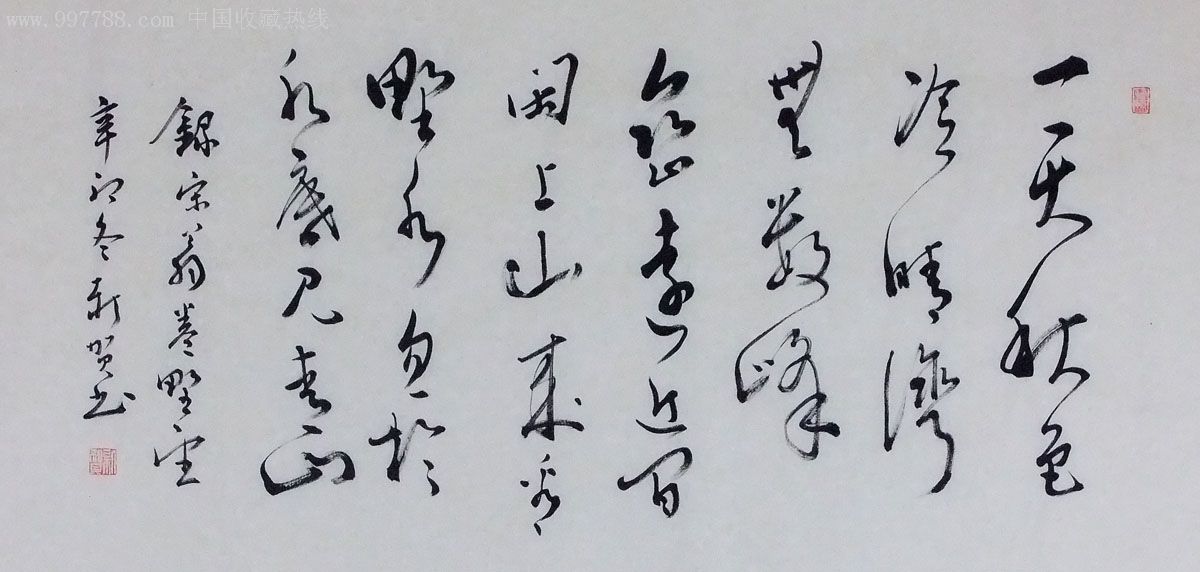 www.997788.com 中国收藏热线
一天秋色
冷晴灣
無數峰
巒遠近间
闲上山來看
野水忽於
水底见青山
錄宋翁卷野望
辛卯冬新贺书